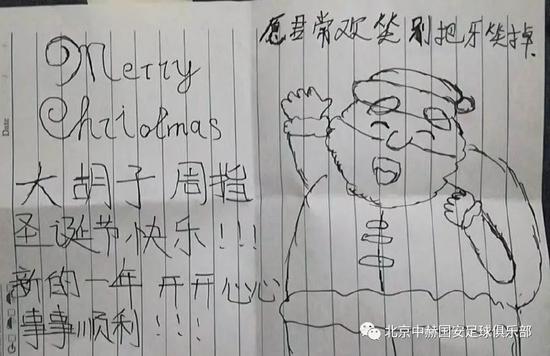 Merry
Chriolmas
大胡子周指
圣诞节快乐!!!
新的一年 开开心心
事事顺利!!!
愿君常欢笑别把牙笑掉
Date
北京中赫国安足球俱乐部